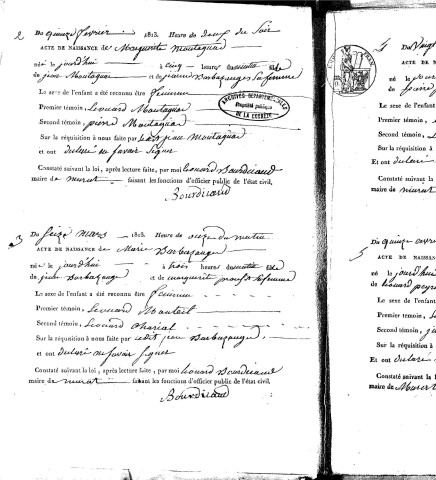 2 Du quinze fevrier 1813. Heure de deux de soir
ACTE DE NAISSANCE de Marguerite Moutaguai
née le jourd'hui à cinq heures du matin fille
de jean Moutaguai et de jeanne Barbazange sa femme
Le sexe de l'enfant a été reconnu être feminin
Premier témoin, Léonard Moutaguai
Second témoin, pierre Moutaguai
Sur la réquisition à nous faite par ledit jean Moutaguai
et ont déclaré ne savoir signer
Constaté suivant la loi, après lecture faite, par moi Léonard Bourdicaud
maire de murat faisant les fonctions d'officier public de l'état civil.
Bourdicaud
ARCHIVES DÉPARTEMENTALES
Propriété publique
DE LA CORRÈZE
3 Du seize mars 1813. Heure de onze du matin
ACTE DE NAISSANCE de Marie Barbazange
née le jourd'hui à trois heures du matin fille
de jean Barbazange et de marguerite sa femme
Le sexe de l'enfant a été reconnu être feminin
Premier témoin, Léonard
Second témoin, Léonard
Sur la réquisition à nous faite par ledit jean Barbazange
et ont déclaré ne savoir signer
Constaté suivant la loi, après lecture faite, par moi Léonard Bourdicaud
maire de murat faisant les fonctions d'officier public de l'état civil.
Bourdicaud
4 Du vingt
ACTE DE NAISSAN
né le jourd'hui
de pierre
Le sexe de l'enfant
Premier témoin,
Second témoin,
Sur la réquisition à
Et ont déclaré
Constaté suivant la l
maire de murat
5 Du quinze avri
ACTE DE NAISSAN
né le jourd'h
de Léonard
Le sexe de l'enfant
Premier témoin,
Second témoin,
Sur la réquisition à
Et ont déclaré
Constaté suivant la
maire de Murat